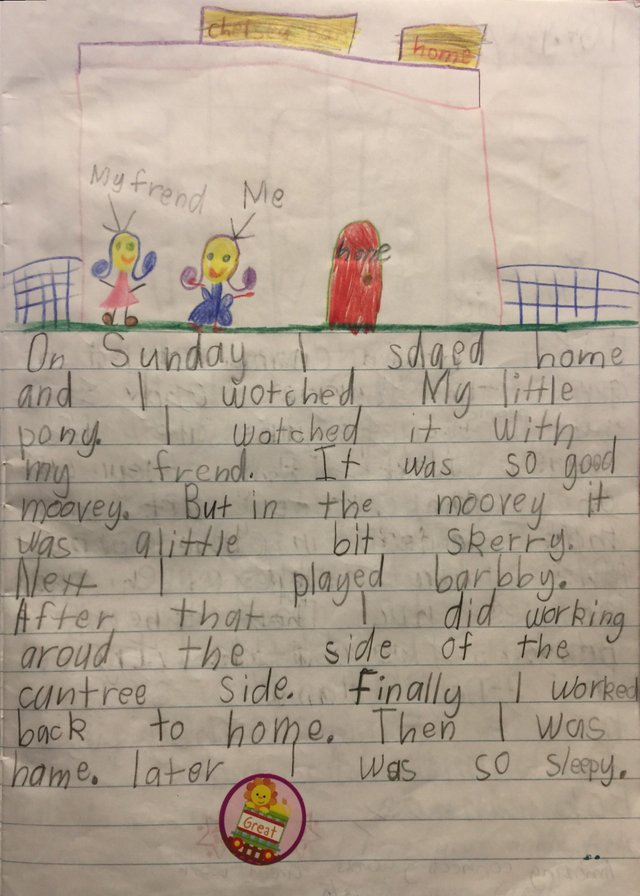 chelsea
home
My frend
Me
home
On Sunday I sdaed home
and I wotched My little
pony. I wotched it With
my frend. It was so good
moovey. But in the moovey it
was alittle bit skerry.
Next I played barbby.
After that I did working
aroud the side of the
cuntree side. Finally I worked
back to home. Then I was
hame. later I was so sleepy.
Great